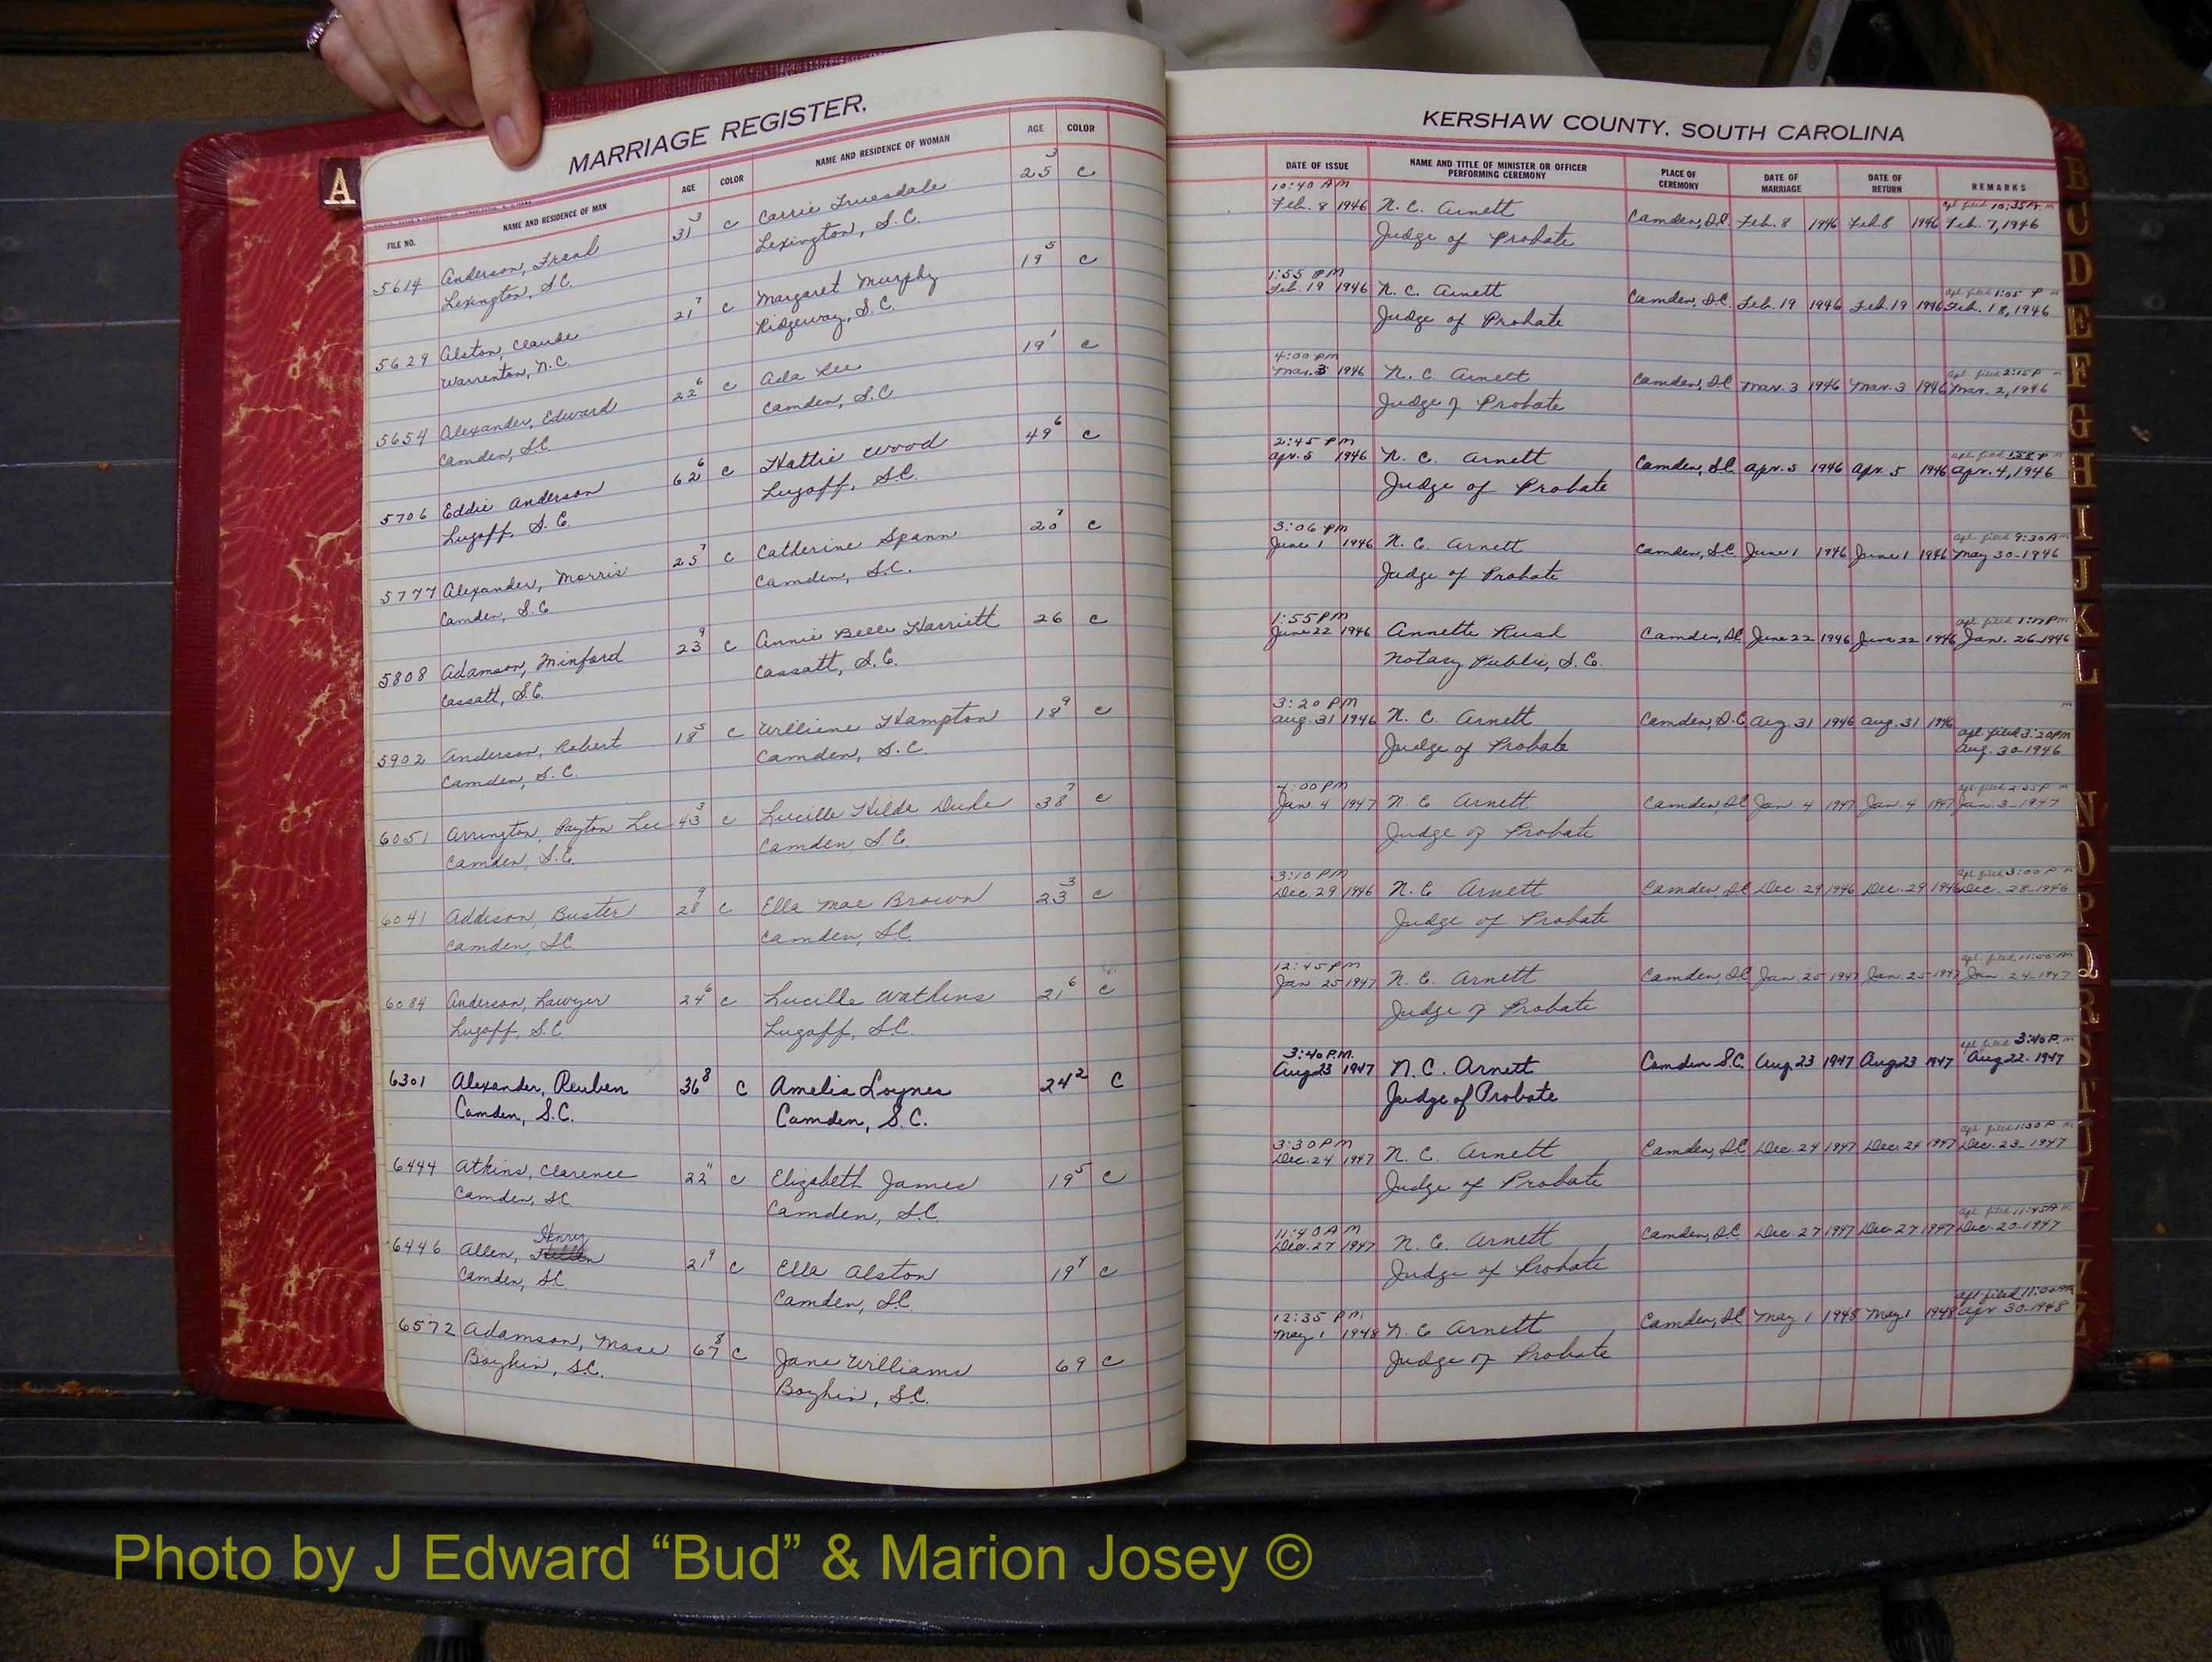 MARRIAGE REGISTER.
KERSHAW COUNTY, SOUTH CAROLINA
A
FILE NO. NAME AND RESIDENCE OF MAN AGE COLOR NAME AND RESIDENCE OF WOMAN AGE COLOR
DATE OF ISSUE NAME AND TITLE OF MINISTER OR OFFICER PERFORMING CEREMONY PLACE OF CEREMONY DATE OF MARRIAGE DATE OF RETURN REMARKS
10:40 AM Apl. filed 10:35 A.m
5614 Anderson, Frank 31 3 C Carrie Truesdale 25 3 C Feb. 8 1946 N. C. Arnett Camden, S.C. Feb. 8 1946 Feb 8 1946 Feb. 7, 1946
Lexington, S.C. Lexington, S.C. Judge of Probate
1:55 PM Apl. filed 1:05 P m
5629 Alston, Claude 21 7 C Margaret Murphy 19 5 C Feb. 19 1946 N. C. Arnett Camden, S.C. Feb. 19 1946 Feb. 19 1946 Feb. 18, 1946
Warrenton, N.C Ridgeway, S.C. Judge of Probate
4:00 PM Apl. filed 2:15 P m
5654 Alexander, Edward 22 6 C Ada Lee 19 1 C Mar. 3 1946 N. C. Arnett Camden, S.C Mar. 3 1946 Mar. 3 1946 Mar. 2, 1946
Camden, S.C Camden, S.C. Judge of Probate
2:45 PM Apl. filed 1:58 P m
5706 Eddie Anderson 62 6 C Hattie Wood 49 6 C Apr. 5 1946 N. C. Arnett Camden, S.C Apr. 5 1946 Apr. 5 1946 Apr. 4, 1946
Lugoff, S.C. Lugoff, S.C. Judge of Probate
3:06 PM Apl. filed 9:30 A m
5777 Alexander, Morris 25 7 C Catherine Spann 20 7 C June 1 1946 N. C. Arnett Camden, S.C. June 1 1946 June 1 1946 May 30-1946
Camden, S.C Camden, S.C. Judge of Probate
1:55 PM Apl. filed
5808 Adamson, Minford 23 9 C Annie Belle Harriett 26 C June 22 1946 Annette Rush Camden, S.C June 22 1946 June 22 1946 Jan. 26-1946
Cassatt, S.C. Cassatt, S.C. Notary Public, S.C.
3:20 PM
5902 Anderson, Robert 18 5 C Williene Hampton 18 9 C Aug. 31 1946 N. C. Arnett Camden, S.C Aug 31 1946 Aug. 31 1946 Apl. filed 3:20 PM
Camden, S.C. Camden, S.C. Judge of Probate Aug. 30-1946
4:00 PM Apl. filed
6051 Arrington, Payton Lee 43 3 C Lucille Hilda Duke 38 7 C Jan. 4 1947 N. C Arnett Camden, S.C Jan. 4 1947 Jan. 4 1947 Jan. 3-1947
Camden, S.C. Camden, S.C Judge of Probate
3:10 PM Apl. filed 3:00 P m
6041 Addison, Buster 28 9 C Ella Mae Brown 23 3 C Dec. 29 1946 N. C Arnett Camden, S.C Dec. 29 1946 Dec. 29 1946 Dec. 28-1946
Camden, S.C Camden, S.C. Judge of Probate
12:45 PM Apl. filed 11:50 A m
6084 Anderson, Lawyer 24 6 C Lucille Watkins 21 6 C Jan 25 1947 N. C. Arnett Camden, S.C Jan 25 1947 Jan. 25 1947 Jan. 24-1947
Lugoff, S.C Lugoff, S.C. Judge of Probate
3:40 P.M. Apl. filed 3:40 P. m
6301 Alexander, Reuben 36 8 C Amelia Loynes 24 2 C Aug 23 1947 N. C. Arnett Camden S.C. Aug 23 1947 Aug 23 1947 Aug 22-1947
Camden, S.C. Camden, S.C. Judge of Probate
3:30 PM Apl. filed 1:30 P m
6444 Atkins, Clarence 22 11 C Elizabeth James 19 5 C Dec. 24 1947 N. C. Arnett Camden, S.C Dec. 24 1947 Dec. 24 1947 Dec. 23-1947
Camden, S.C Camden, S.C. Judge of Probate
Henry 11:40 AM Apl. filed 11:45 A m
6446 Allen, 21 9 C Ella Alston 19 9 C Dec. 27 1947 N. C. Arnett Camden, S.C Dec. 27 1947 Dec. 27 1947 Dec. 20-1947
Camden, S.C Camden, S.C. Judge of Probate
12:35 PM Apl filed 11:00 A m
6572 Adamson, Mose 67 8 C Jane Williams 69 C May 1 1948 N. C Arnett Camden, S.C May 1 1948 May 1 1948 Apr 30-1948
Boykin, S.C. Boykin, S.C. Judge of Probate
B
C
D
E
F
G
H
I
J
K
L
N
O
P
Q
R
S
T
U
V
Photo by J Edward “Bud” & Marion Josey ©